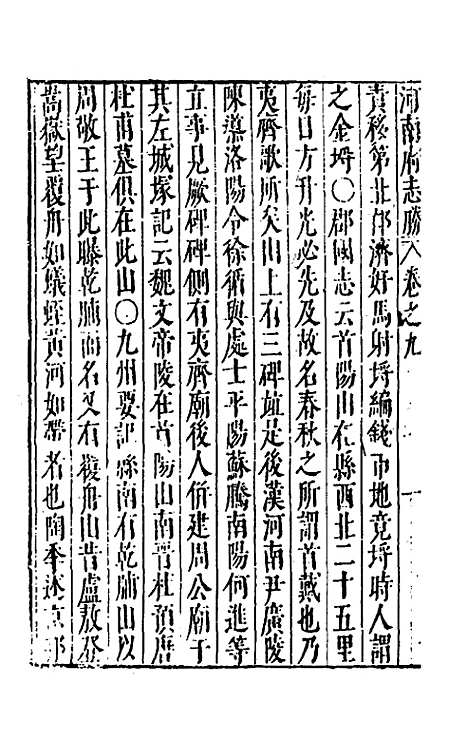 河南府志勝 卷之九
責移第北邙濟好馬射埒編錢市地竟埒時人謂
之金埒○郡國志云首陽山在縣西北二十五里
每日方升光必先及故名春秋之所謂首戴也乃
夷齊歌所矣山上有三碑竝是後漢河南尹廣陵
陳導洛陽令徐循與處士平陽蘇騰南陽何進等
立事見厥碑碑側有夷齊廟後人併建周公廟于
其左城塚記云魏文帝陵在首陽山南晉杜預唐
杜甫墓俱在此山○九州要記縣南有乾脯山以
周敬王于此曝乾脯而名又有覆舟山昔盧敖登
嵩嶽望覆舟如蟻蛭黃河如帶者也陶季述京